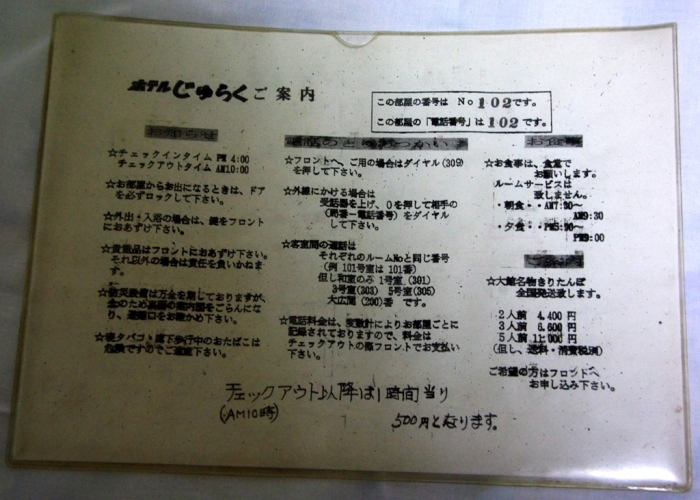 ホテルじゅらくご案内
この部屋の番号は No102です。
この部屋の「電話番号」は102です。
お知らせ
☆チェックインタイム PM 4:00
チェックアウトタイム AM10:00
☆お部屋からお出になるときは、ドア
を必ずロックして下さい。
☆外出・入浴の場合は、鍵をフロント
におあずけ下さい。
☆貴重品はフロントにおあずけ下さい。
それ以外の場合は責任を負いかねま
す。
☆防災設備は万全を期しておりますが、
念のため各階の案内図をごらんにな
り、避難口をお確かめ下さい。
☆寝タバコ・廊下歩行中のおたばこは
危険ですのでご遠慮下さい。
☆フロントへ、ご用の場合はダイヤル(309)
を押して下さい。
☆外線にかける場合は
受話器を上げ、0を押して相手の
(局番ー電話番号)をダイヤル
して下さい。
☆客室間の通話は
それぞれのルームNoと同じ番号
(例 101号室は 101番)
但し和室のみ 1号室 (301)
3号室(303) 5号室(305)
大広間 (200)番 です。
☆電話料金は、度数計によりお部屋ごとに
記録されておりますので、料金は
チェックアウトの際フロントでお支払い
下さい。
お食事
☆お食事は、食堂で
お願いします。
ルームサービスは
致しません。
・朝食・・AM7:30～
AM9:30
・夕食・・PM5:30～
PM9:00
☆大館名物きりたんぽ
全国発送致します。
2人前 4,400円
3人前 6,600円
5人前 11,000円
(但し、送料・消費税別)
ご希望の方はフロントへ
お申し込み下さい。
チェックアウト以降は1時間当り
(AM10時)
500円となります。